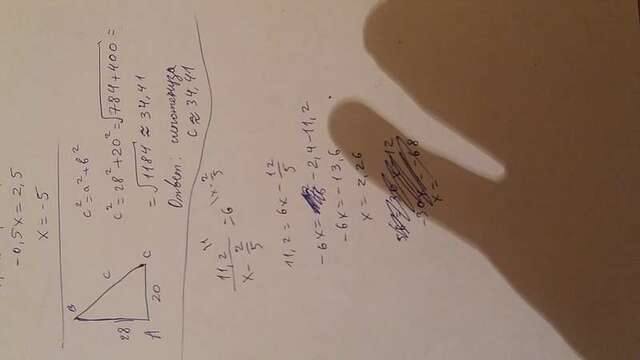 -0,5x = 2,5
x = -5
B
c
C
28
A
20
c² = a² + b²
c² = 28² + 20² = √784 + 400 =
= √1184 ≈ 34,41
Ответ: гипотенуза
c ≈ 34,41
11,2 / x - 2/5 = 6
11,2 = 6x - 12/5
-6x = -2,4 - 11,2
-6x = -13,6
x = 2,26
x =